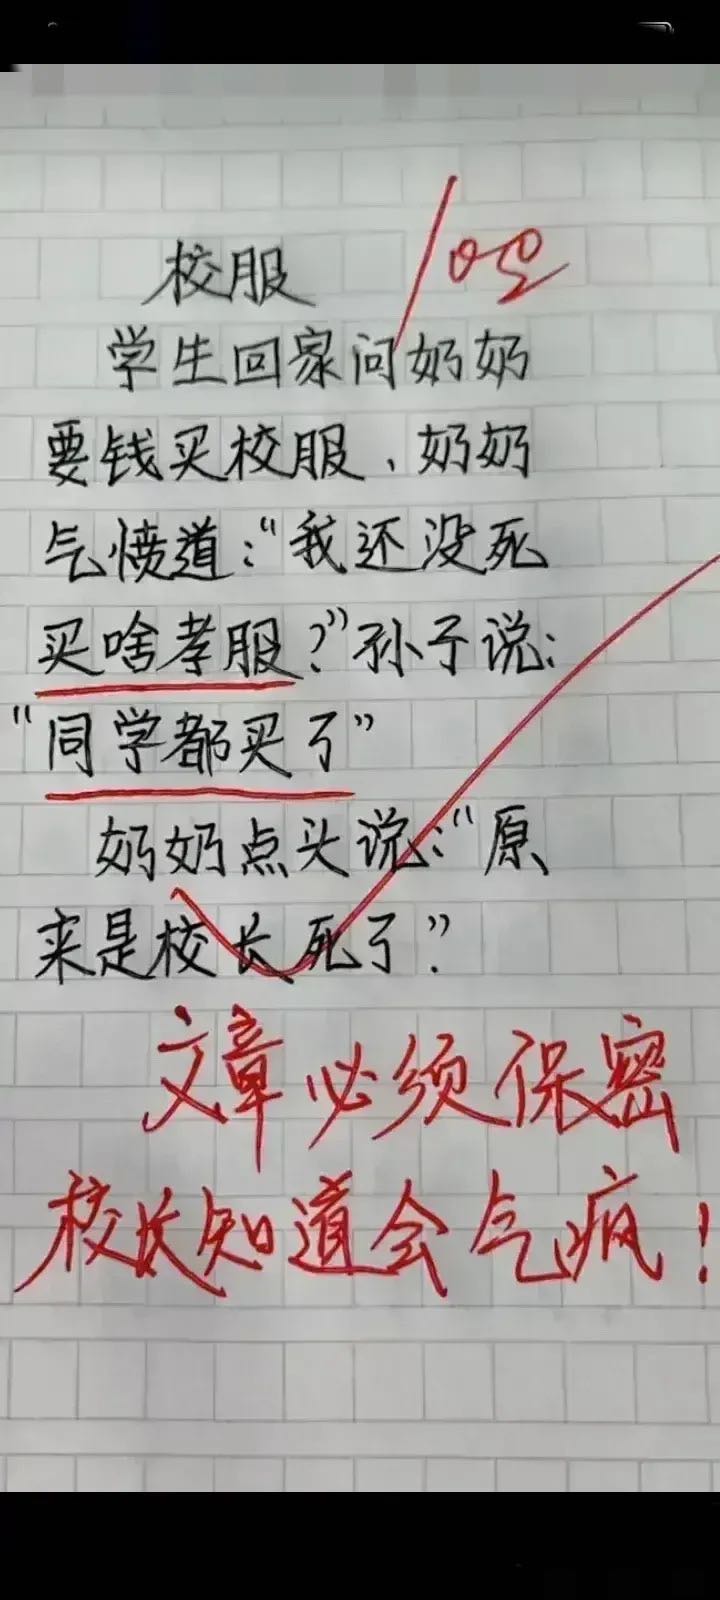 校服
学生回家问奶奶
要钱买校服、奶奶
气愤道：“我还没死
买啥孝服？”孙子说：
“同学都买了”
奶奶点头说：“原
来是校长死了”
文章必须保密
校长知道会气疯！